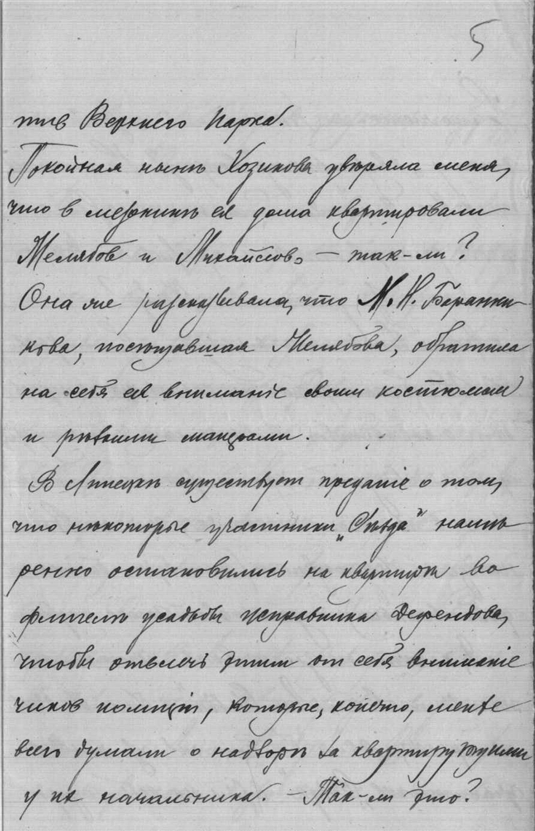 5
тив Верхнего парка.
Покойная нынѣ Козикова увѣряла меня,
что в мезонинѣ ея дома квартировали
Желябов и Михайловъ — так-ли?
Она же разсказывала, что М. Н. Баранни
кова, посѣщавшая Желябова, обратила
на себя ея вниманіе своим костюмом
и рѣзкими манерами.
В Липецкѣ существует преданіе о том,
что нѣкоторые участники „Съѣзда" намѣ
ренно остановились на квартирѣ во
флигелѣ усадьбы исправника
чтобы отвлечь этим от себя вниманіе
чинов полиціи, которые, конечно, менѣе
всего думали о надзорѣ за квартирующими
у их начальника. — Так-ли это?